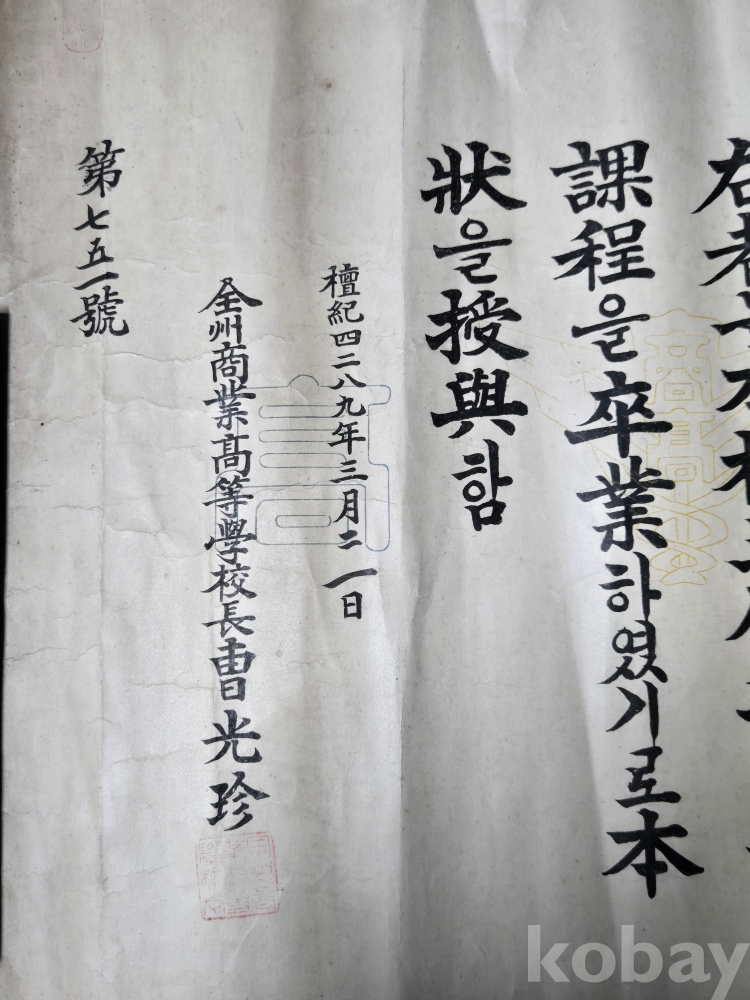 右者
課程을卒業하였기로本
狀을授與함
檀紀四二八九年三月二一日
全州商業高等學校長曺光珍
第七五一號
高
kobay